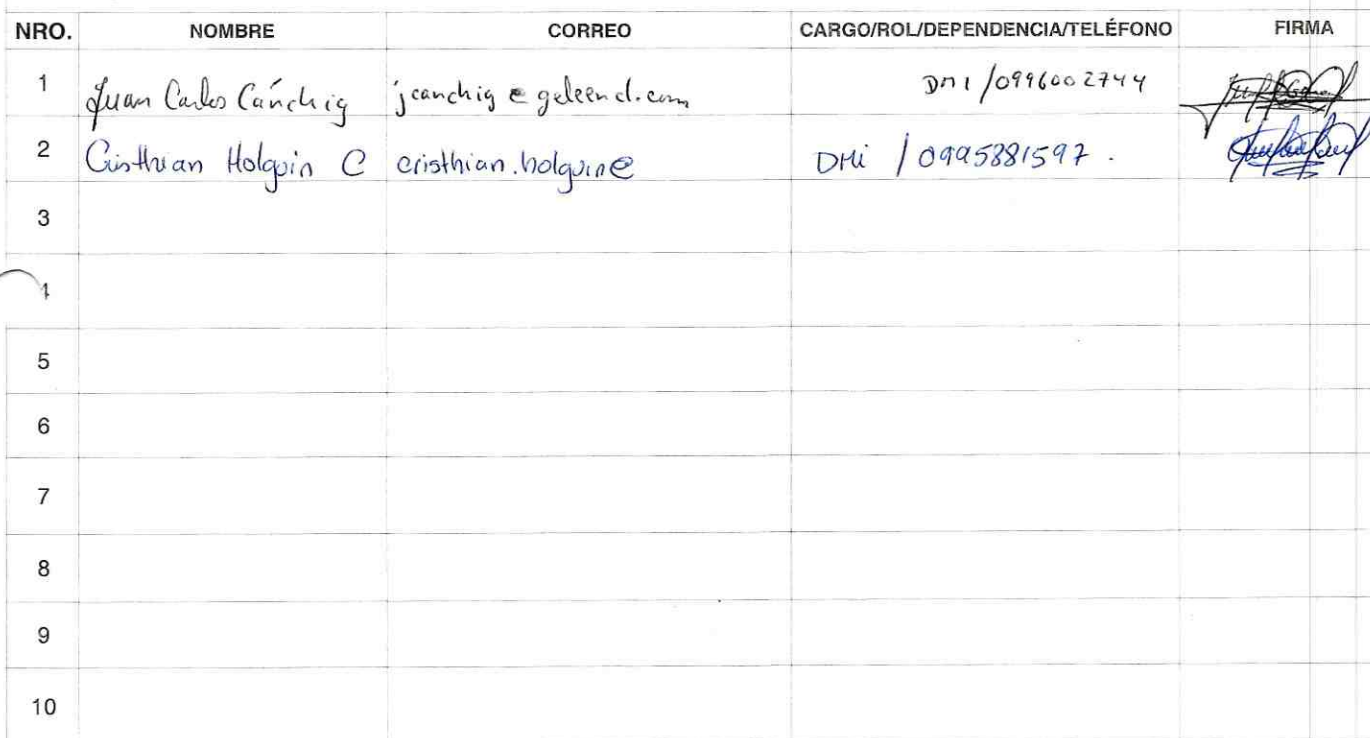 NRO. NOMBRE CORREO CARGO/ROL/DEPENDENCIA/TELÉFONO FIRMA
1 Juan Carlos Cánchig jcanchig@geleend.com DMI /0996002744
2 Cristhian Holguin C cristhian.holguin@ DMi / 0995881597.
3
4
5
6
7
8
9
10